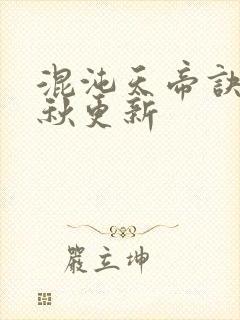 混沌天帝訣
秋更新
嚴立坤